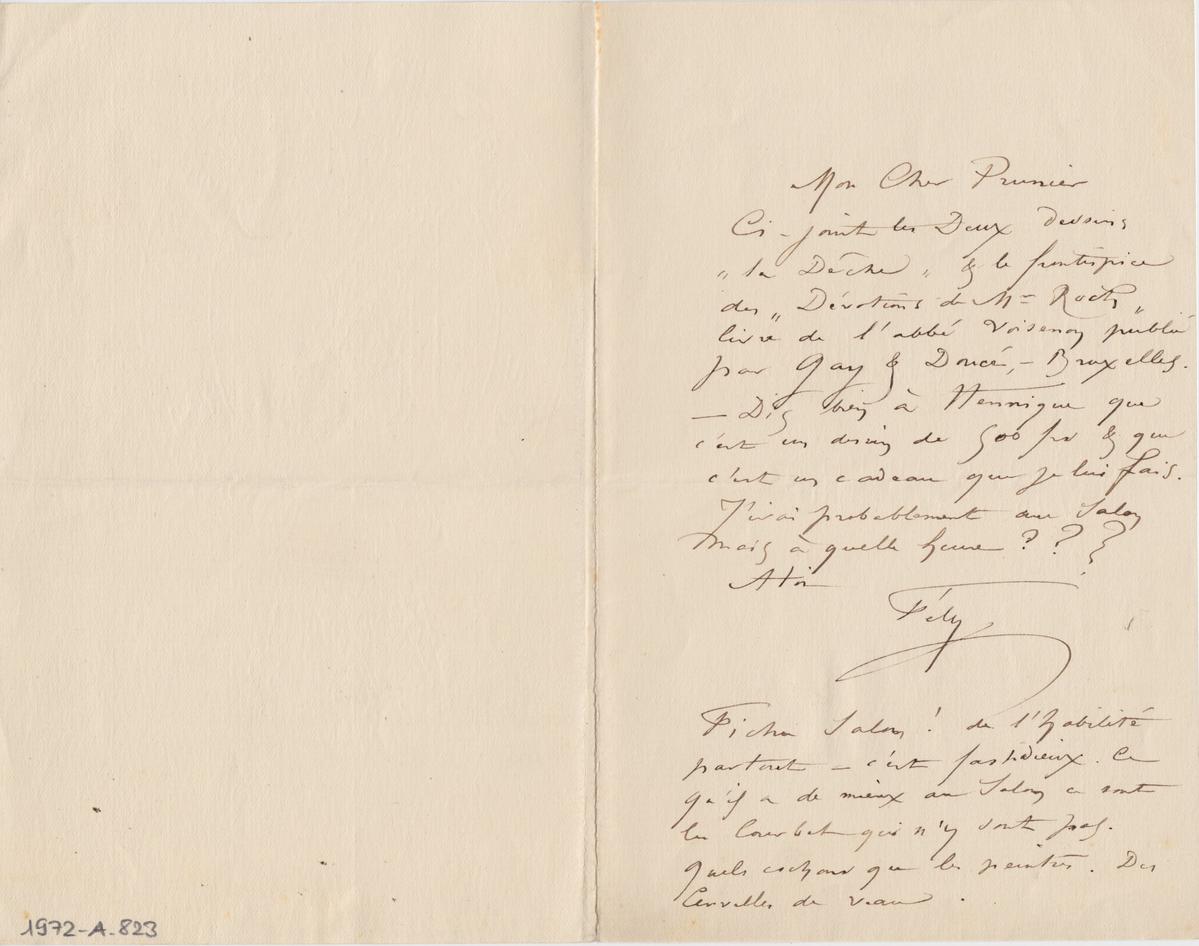 Mon Cher Prunier
Ci-joint les Deux dessins
„ la Dèche „ & le frontispice
des „ Dévotions de Mme Roch „
livre de l'abbé Voisenon publié
par Gay & Doucé, – Bruxelles.
— Dis bien à Hennique que
c'est un dessin de 500 frs & que
c'est un cadeau que je lui fais.
J'irai probablement au Salon
mais à quelle heure ? ? ?
A toi
Fély
Fichu Salon ! de l'habilité
partout – c'est fastidieux. Ce
qu'il a de mieux au Salon ce sont
les Courbet qui n'y sont pas.
Quels cochons que les peintres. Des
Cervelles de veau.
1972-A.823